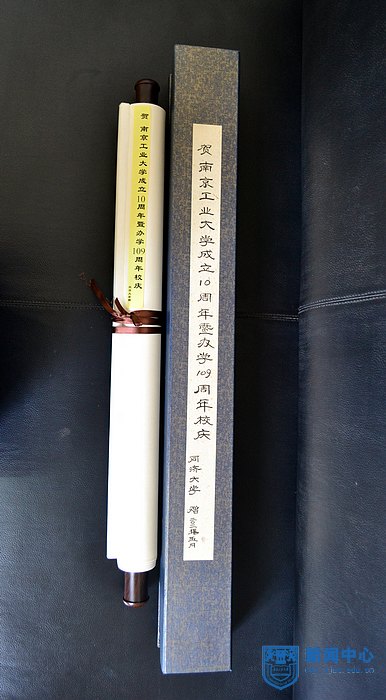 贺 南京工业大学成立10周年暨办学109周年校庆
贺 南京工业大学成立10周年暨办学109周年校庆
同济大学 赠
新闻中心